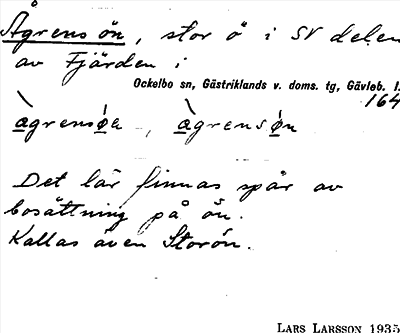 Ågrensön, stor ö i SV delen
av Fjärden i
Ockelbo sn, Gästriklands v. doms. tg, Gävleb. l.
164
Det lär finnas spår av
bosättning på ön.
Kallas även Storön.
LARS LARSSON 1935